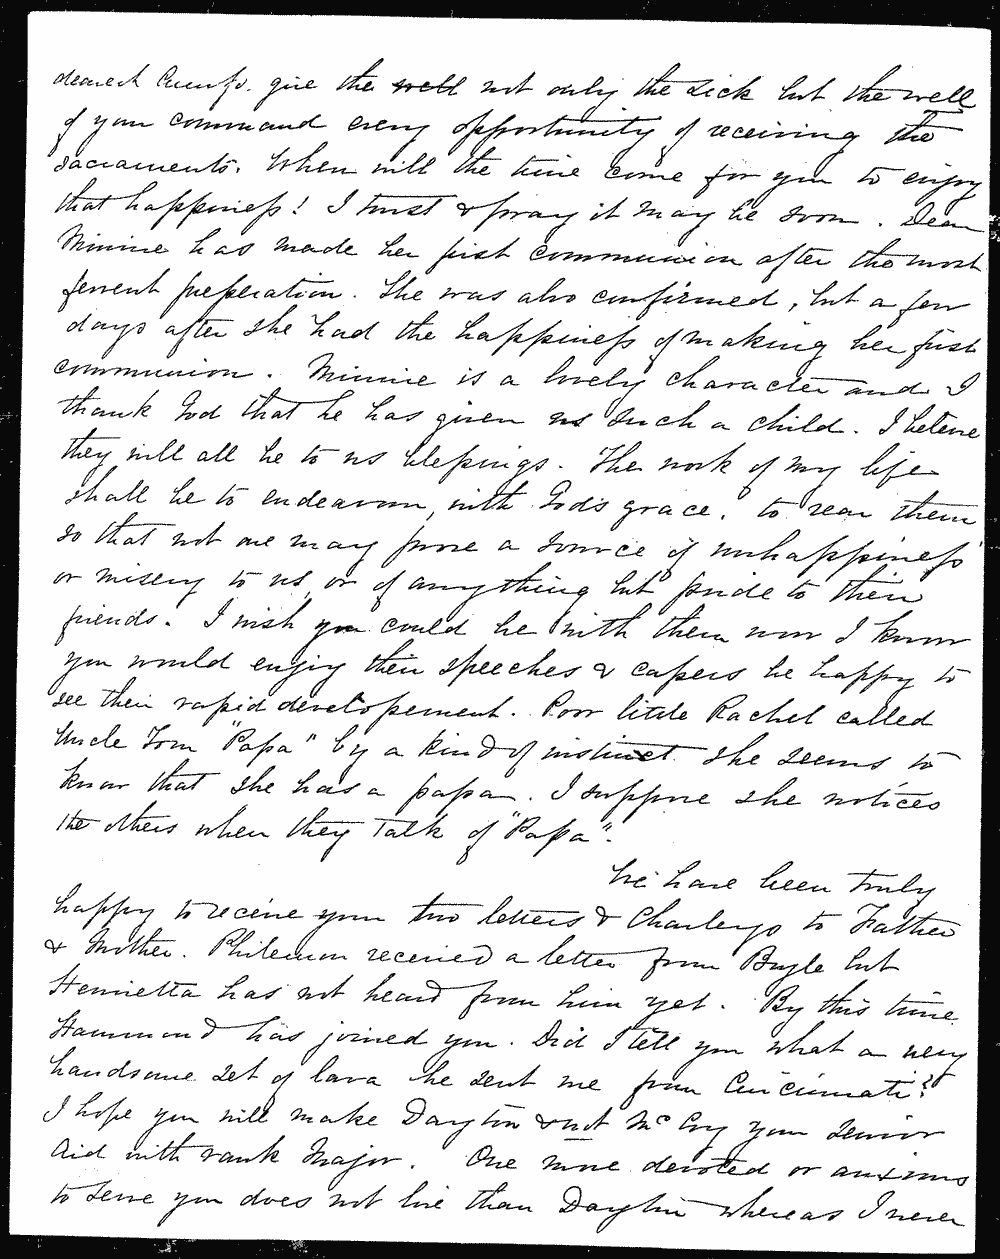 dearest Cump. give the well not only the sick but the well
of your command every opportunity of receiving the
sacraments. When will the time come for you to enjoy
that happiness! I trust & pray it may be soon. Dear
Minnie has made her first communion after the most
fervent preperation. She was also confirmed, but a few
days after she had the happiness of making her first
communion. Minnie is a lovely character and I
thank God that he has given us such a child. I beleive
they will all be to us blessings. The work of my life
shall be to endeavour, with God's grace, to rear them
so that not one may prove a source of unhappiness
or misery to us, or of anything but pride to their
friends. I wish you could be with them now I know
you would enjoy their speeches & capers be happy to
see their rapid developement. Poor little Rachel called
Uncle Tom "Papa" by a kind of instinct she seems to
know that she has a papa. I suppose she notices
the others when they talk of "Papa".
We have been truly
happy to receive your two letters & Charley's to Father
& Mother. Philemon received a letter from Boyle but
Henrietta has not heard from him yet. By this time
Hammond has joined you. Did I tell you what a very
handsome set of lava he sent me from Cincinnati?
I hope you will make Dayton & not McCoy your senior
Aid with rank Major. One more devoted or anxious
to serve you does not live than Dayton whereas I never